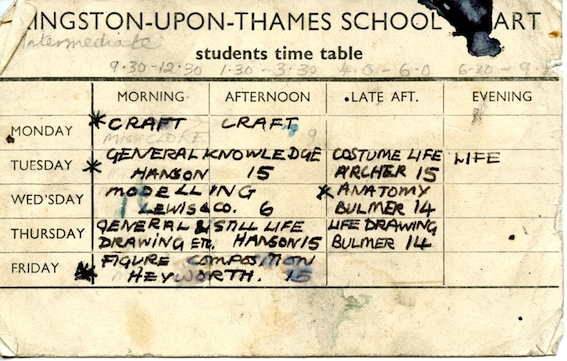 KINGSTON-UPON-THAMES SCHOOL ART
Intermediate
students time table
9.30-12.30 1.30-3.30 4.0-6.0 6.30-9.
MORNING AFTERNOON .LATE AFT. EVENING
MONDAY * CRAFT CRAFT
TUESDAY * GENERAL KNOWLEDGE COSTUME LIFE LIFE
HANSON 15 ARCHER 15
WED'SDAY MODELLING * ANATOMY
LEWIS & CO. 6 BULMER 14
THURSDAY GENERAL & STILL LIFE LIFE DRAWING
DRAWING ETC. HANSON 15 BULMER 14
FRIDAY * FIGURE COMPOSITION
HEYWORTH. 15